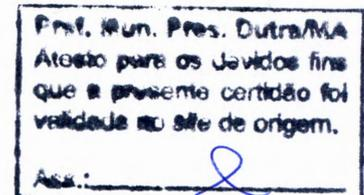 Pref. Mun. Pres. Dutra/MA
Atesto para os devidos fins
que a presente certidão foi
validada no site de origem.
Ass.: